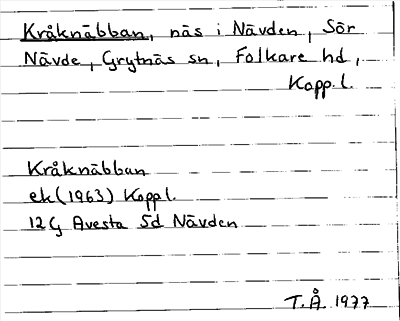 Kråknäbban, näs i Nävden, Sör
Nävde, Grytnäs sn, Folkare hd,
Kopp.l.
Kråknäbban
ek (1963) Koppl.
12G Avesta 5d Nävden
T.Å. 1977